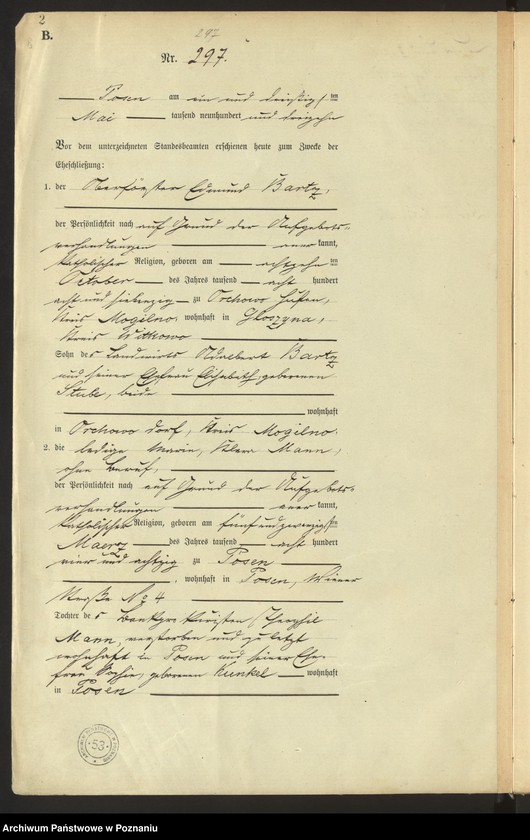 2
B.
297
Nr. 297.
Posen am ein und dreißigsten
Mai tausend neunhundert und dreizehn
Vor dem unterzeichneten Standesbeamten erschienen heute zum Zwecke der
Eheschließung:
1. der Oberförster Edmund Bartz,
der Persönlichkeit nach auf Grund der Aufgebots-
verhandlungen anerkannt,
katholischer Religion, geboren am achtzehnten
October des Jahres tausend acht hundert
acht und siebenzig zu Orchowo Hufen,
Kreis Mogilno, wohnhaft in
Kreis Witkowo
Sohn des Landwirts Adalbert Bartz
und seiner Ehefrau Elisabeth, geborenen
beide
wohnhaft
in Orchowo dorf, Kreis Mogilno.
2. die ledige Maria, Klara Mann,
ohne Beruf,
der Persönlichkeit nach auf Grund der Aufgebots-
verhandlungen anerkannt,
katholischer Religion, geboren am fünfundzwanzigsten
Maerz des Jahres tausend acht hundert
vier und achtzig zu Posen
, wohnhaft in Posen, Wiener
straße No 4
Tochter des Mann, verstorben und zuletzt
wohnhaft in Posen und seiner Ehe-
frau Sophie, geborenen Kunkel wohnhaft
in Posen
ARCHIWUM PAŃSTWOWE W POZNANIU
53
Archiwum Państwowe w Poznaniu